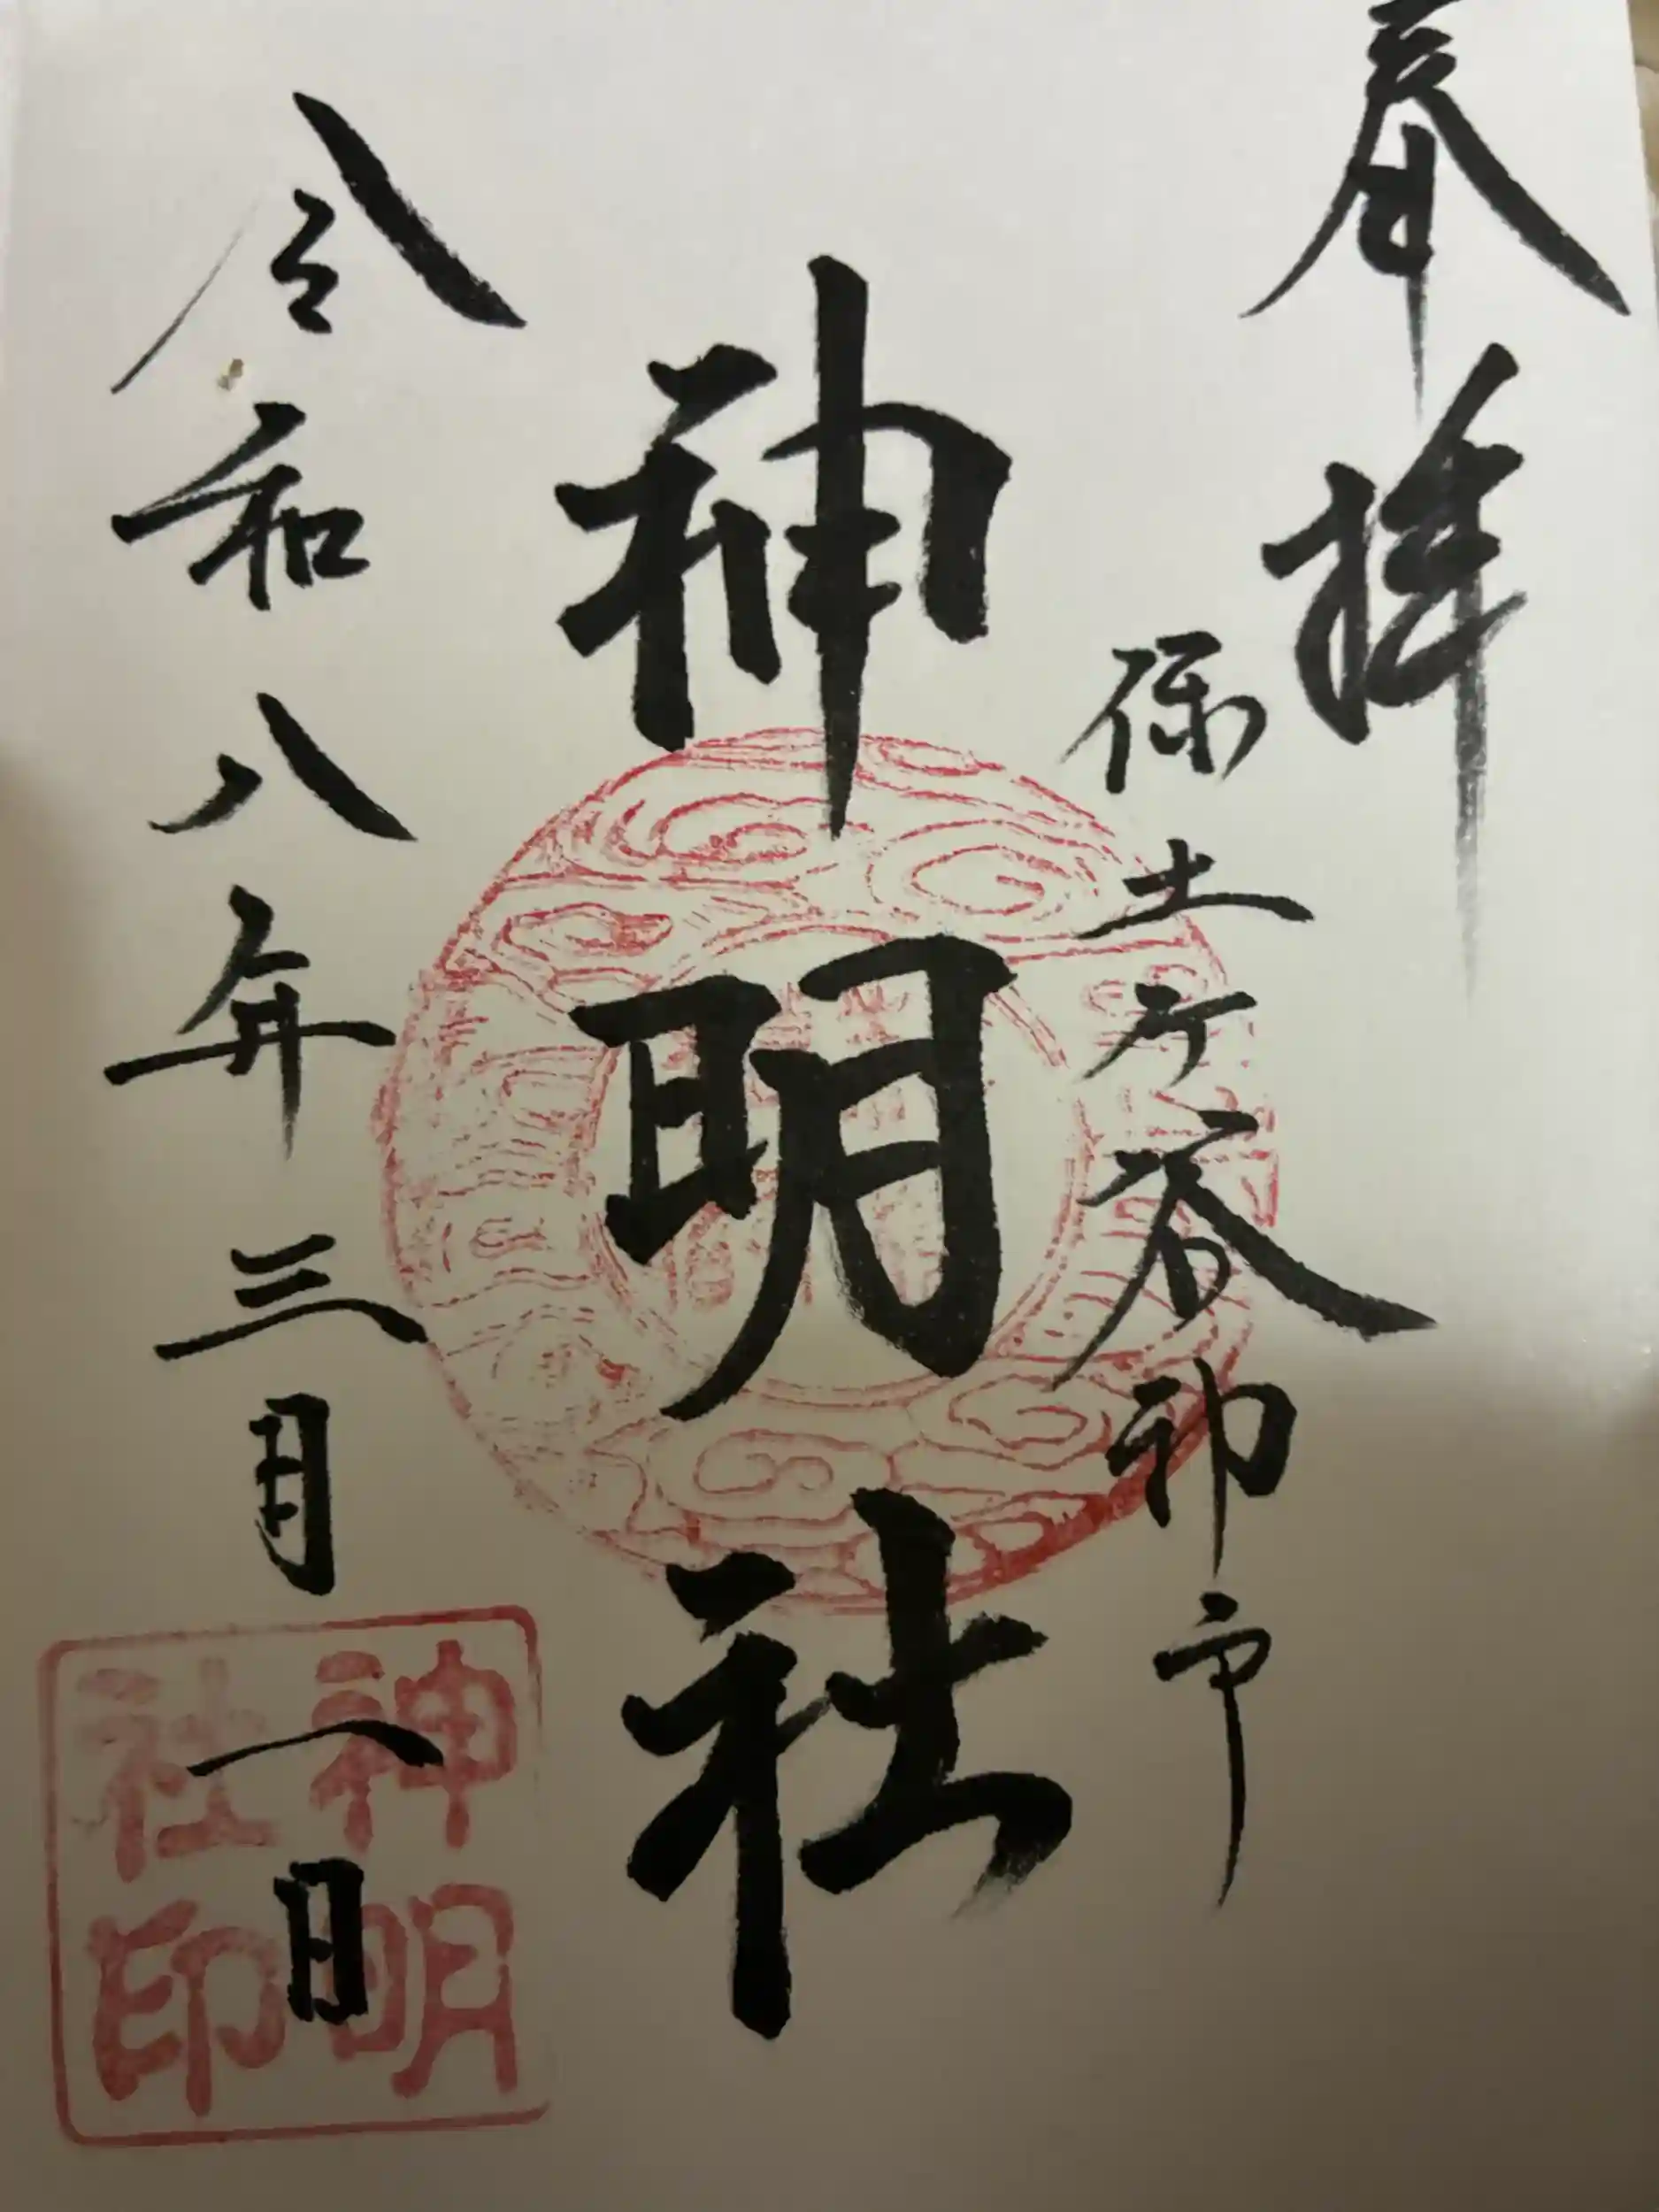 奉拝
保土ケ谷神明社
神明社
令和八年三月一日
神明
社印